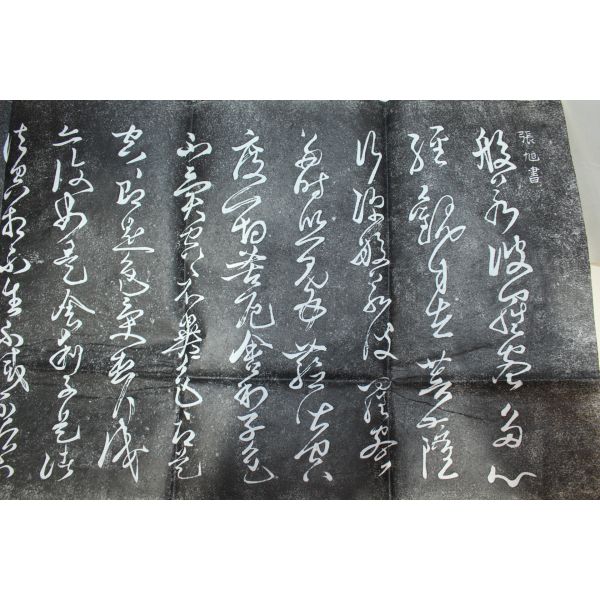 張旭書
般若波羅蜜多心
經觀自在菩薩
行深般若波羅蜜
多時照見五蘊皆空
度一切苦厄舍利子色
不異空〻不異色〻即是
空〻即是色受想行識
亦復如是舍利子是諸
法空相不生不滅不垢不